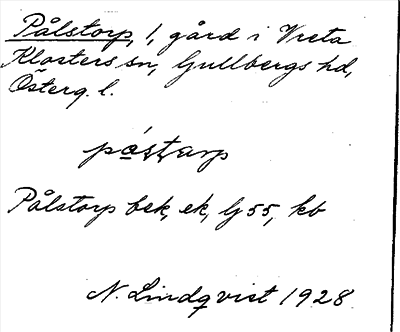 Pålstorp, 1, gård i Vreta
Klosters sn, Gullbergs hd,
Österg. l.
påstarp
Pålstorp bek, ek, lj 55, kb
N. Lindqvist 1928